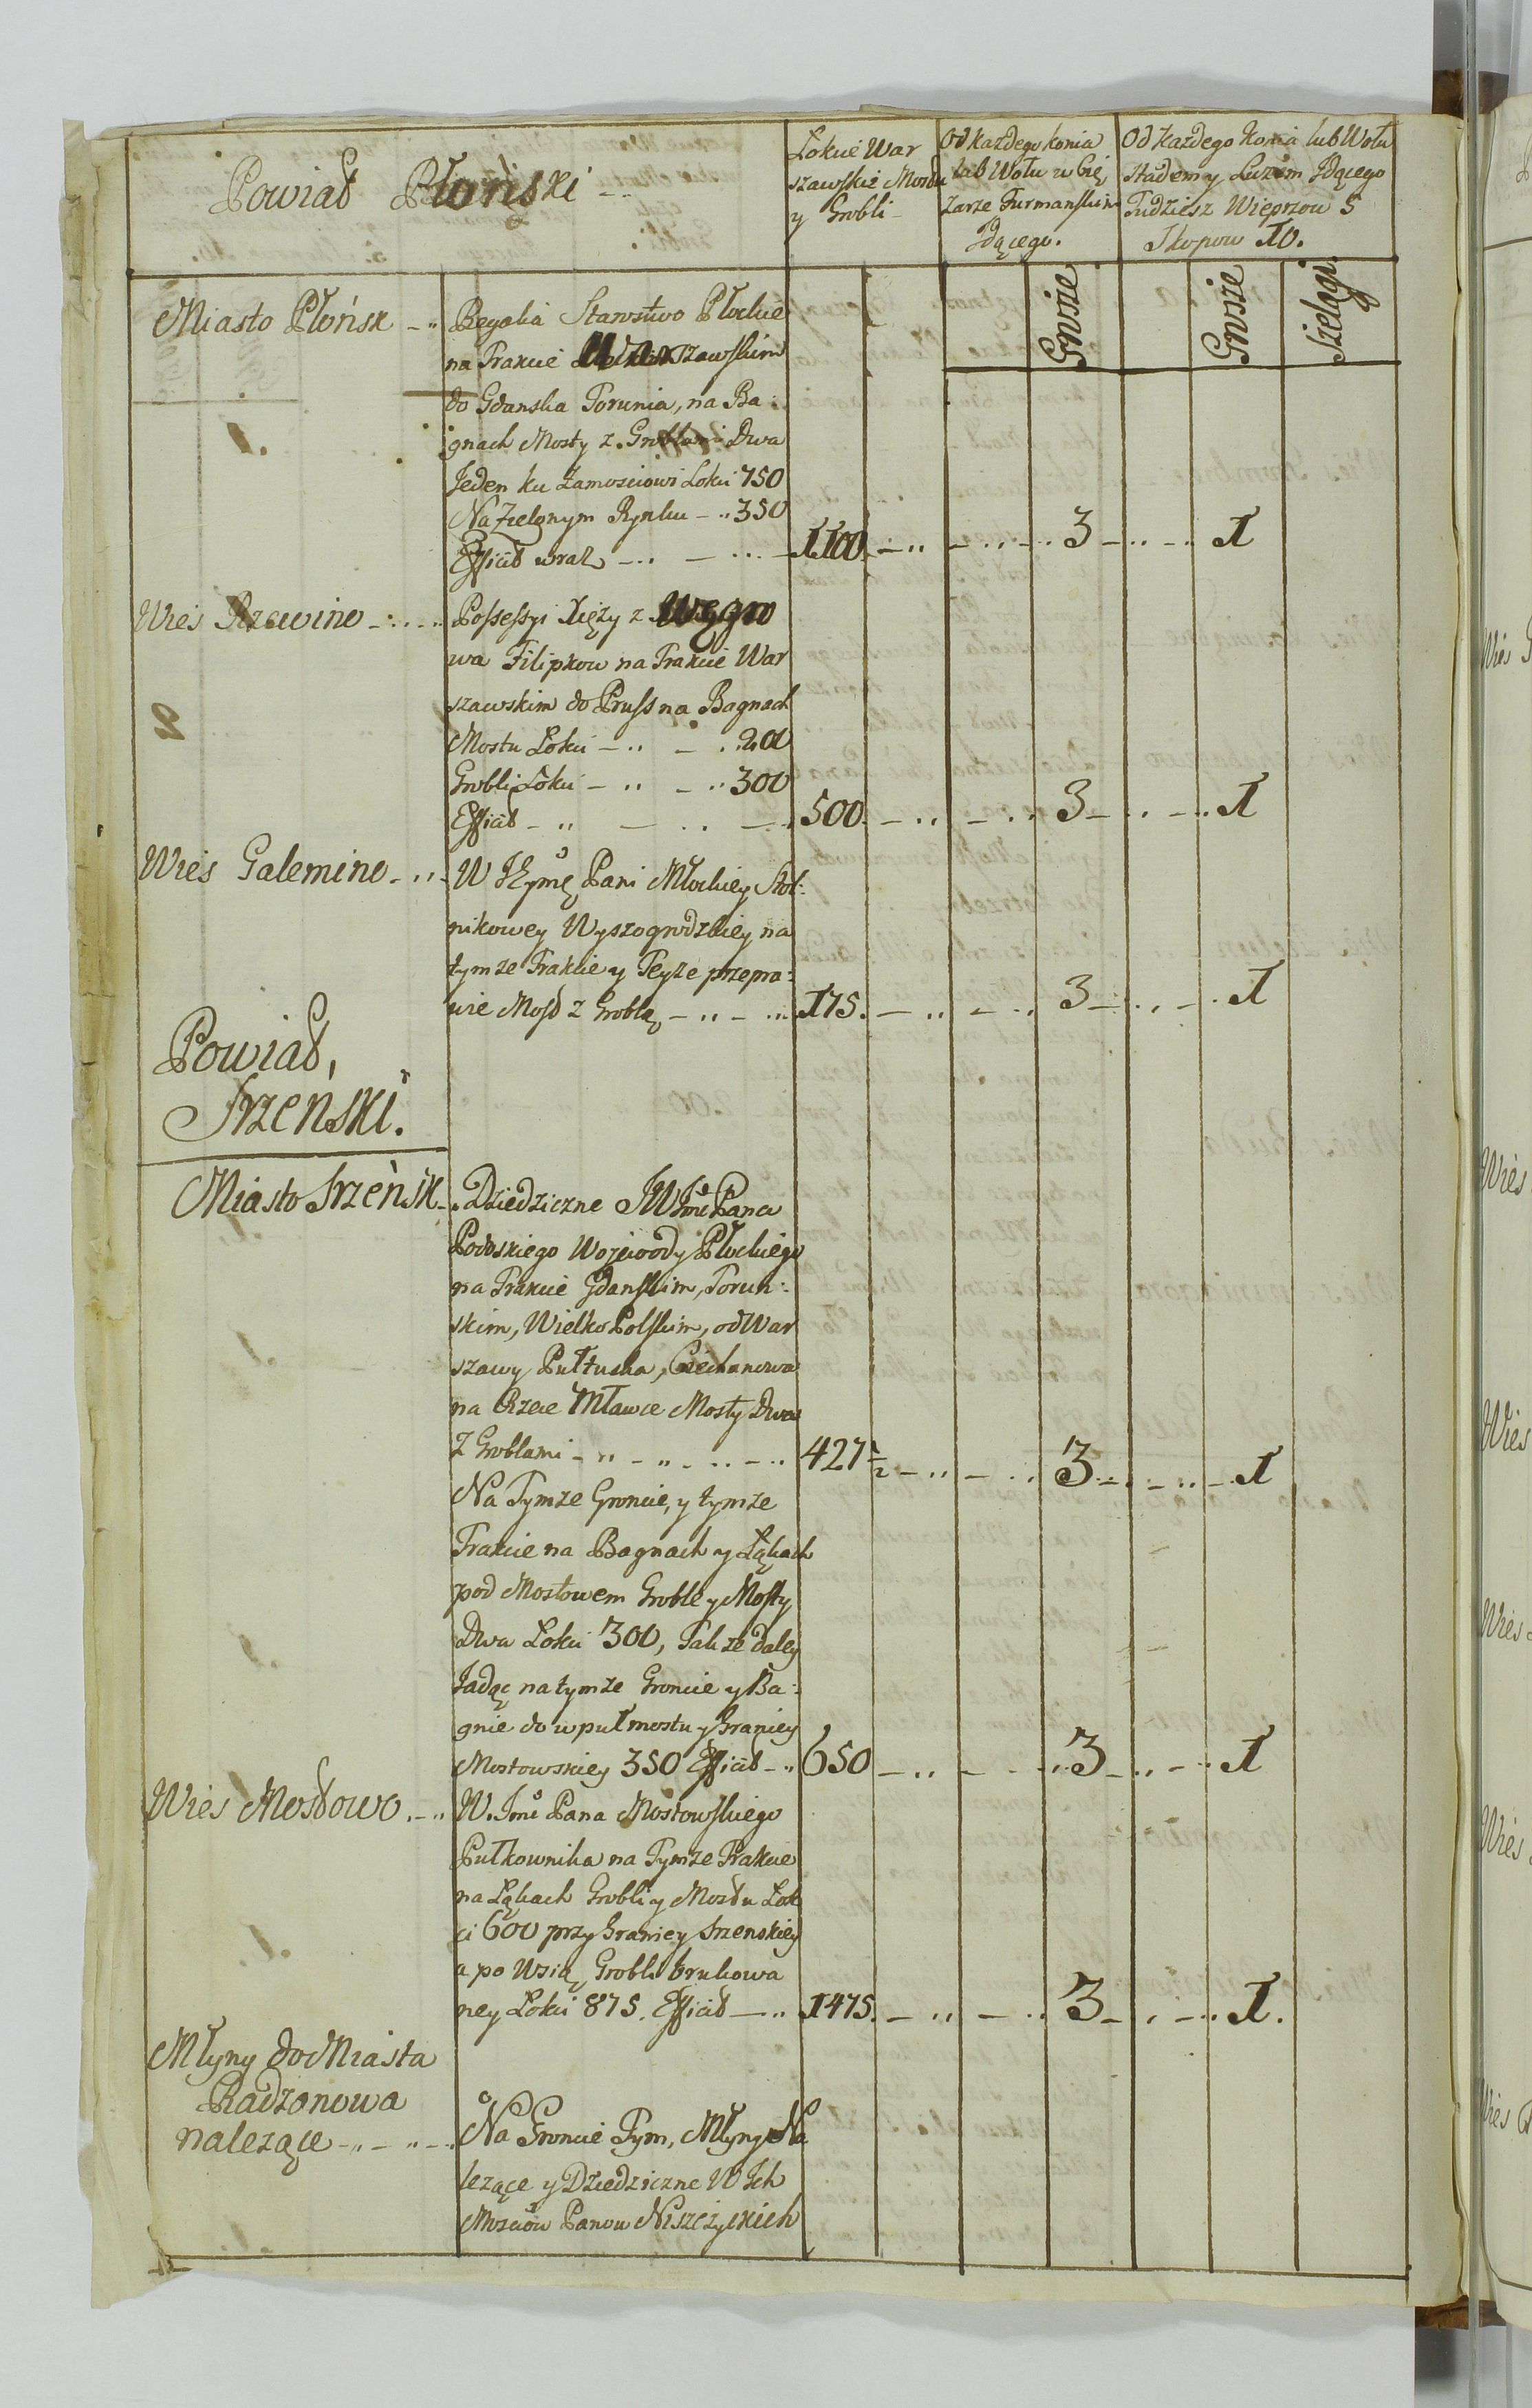 Powiat Płoński
Łokcie War
szawskie Mostu
y Grobli
Od każdego konia
lub Wołu w Cię
żarze Furmanskim
Idącego.
Od każdego Konia lub Wołu
Stadem y Luzem Idącego
Tudziesz Wieprzow 5
Skopow 10.
Grosze
Grosze
Szelągi
Miasto Płońsk
Regalia Starostwo Płockie
na Trakcie Warszawskim
do Gdanska Torunia, na Ba:
gnach Mosty z Groblami Dwa
Jeden ku Zamosciowi Łokci 750
Na Zielonym Rynku 350
Efficit wraz 1100. 3 1
Wieś Rzewino
Possessyi Xięży z Węgro
wa Filipkow na Trakcie War
szawskim do Pruss na Bagnach
Mostu Łokci 200
Grobli Łokci 300
Efficit 500. 3 1
Wieś Galemino
W JEymę Pani Młockiey Stol:
nikowey Wyszogrodzkiey na
tymze Trakcie y Teyze przepra:
wie Most z Groblą 175. 3 1
Powiat,
Srzenski.
Miasto Srzeńsk
Dziedziczne JW Jmć Pana
Podoskiego Wojewody Płockiego
na Trakcie Gdanskim, Torun:
skim, Wielko Polskim, od War
szawy Pułtuska, Ciechanowa
na Rzece Mławce Mosty Dwa
Z Groblami 427 1/2 3 1
Na Tymze Groncie, y tymze
Trakcie na Bagnach y Łąkach
pod Mostowem Groble y Mosty
Dwa Łokci 300, Takze daley
Jadąc na tymze Groncie y Ba:
gnie do w puł mostu y Graniey
Mostowskiey 350 Efficit 650 3 1
Wieś Mostowo
W. Jmć Pana Mostowskiego
Pułkownika na Tymze Trakcie
na Łąkach Grobli y Mostu Łok
ci 600 przy Graniey Srzenskiey
a po Wsią Grobli brukowa
ney Łokci 875. Efficit 1475. 3 1.
Młyny do Miasta
Radzonowa
nalezące
Na Groncie Tym, Młyny Na
lezące y Dziedziczne W Ich
Mosciow Panow Niszczyckich